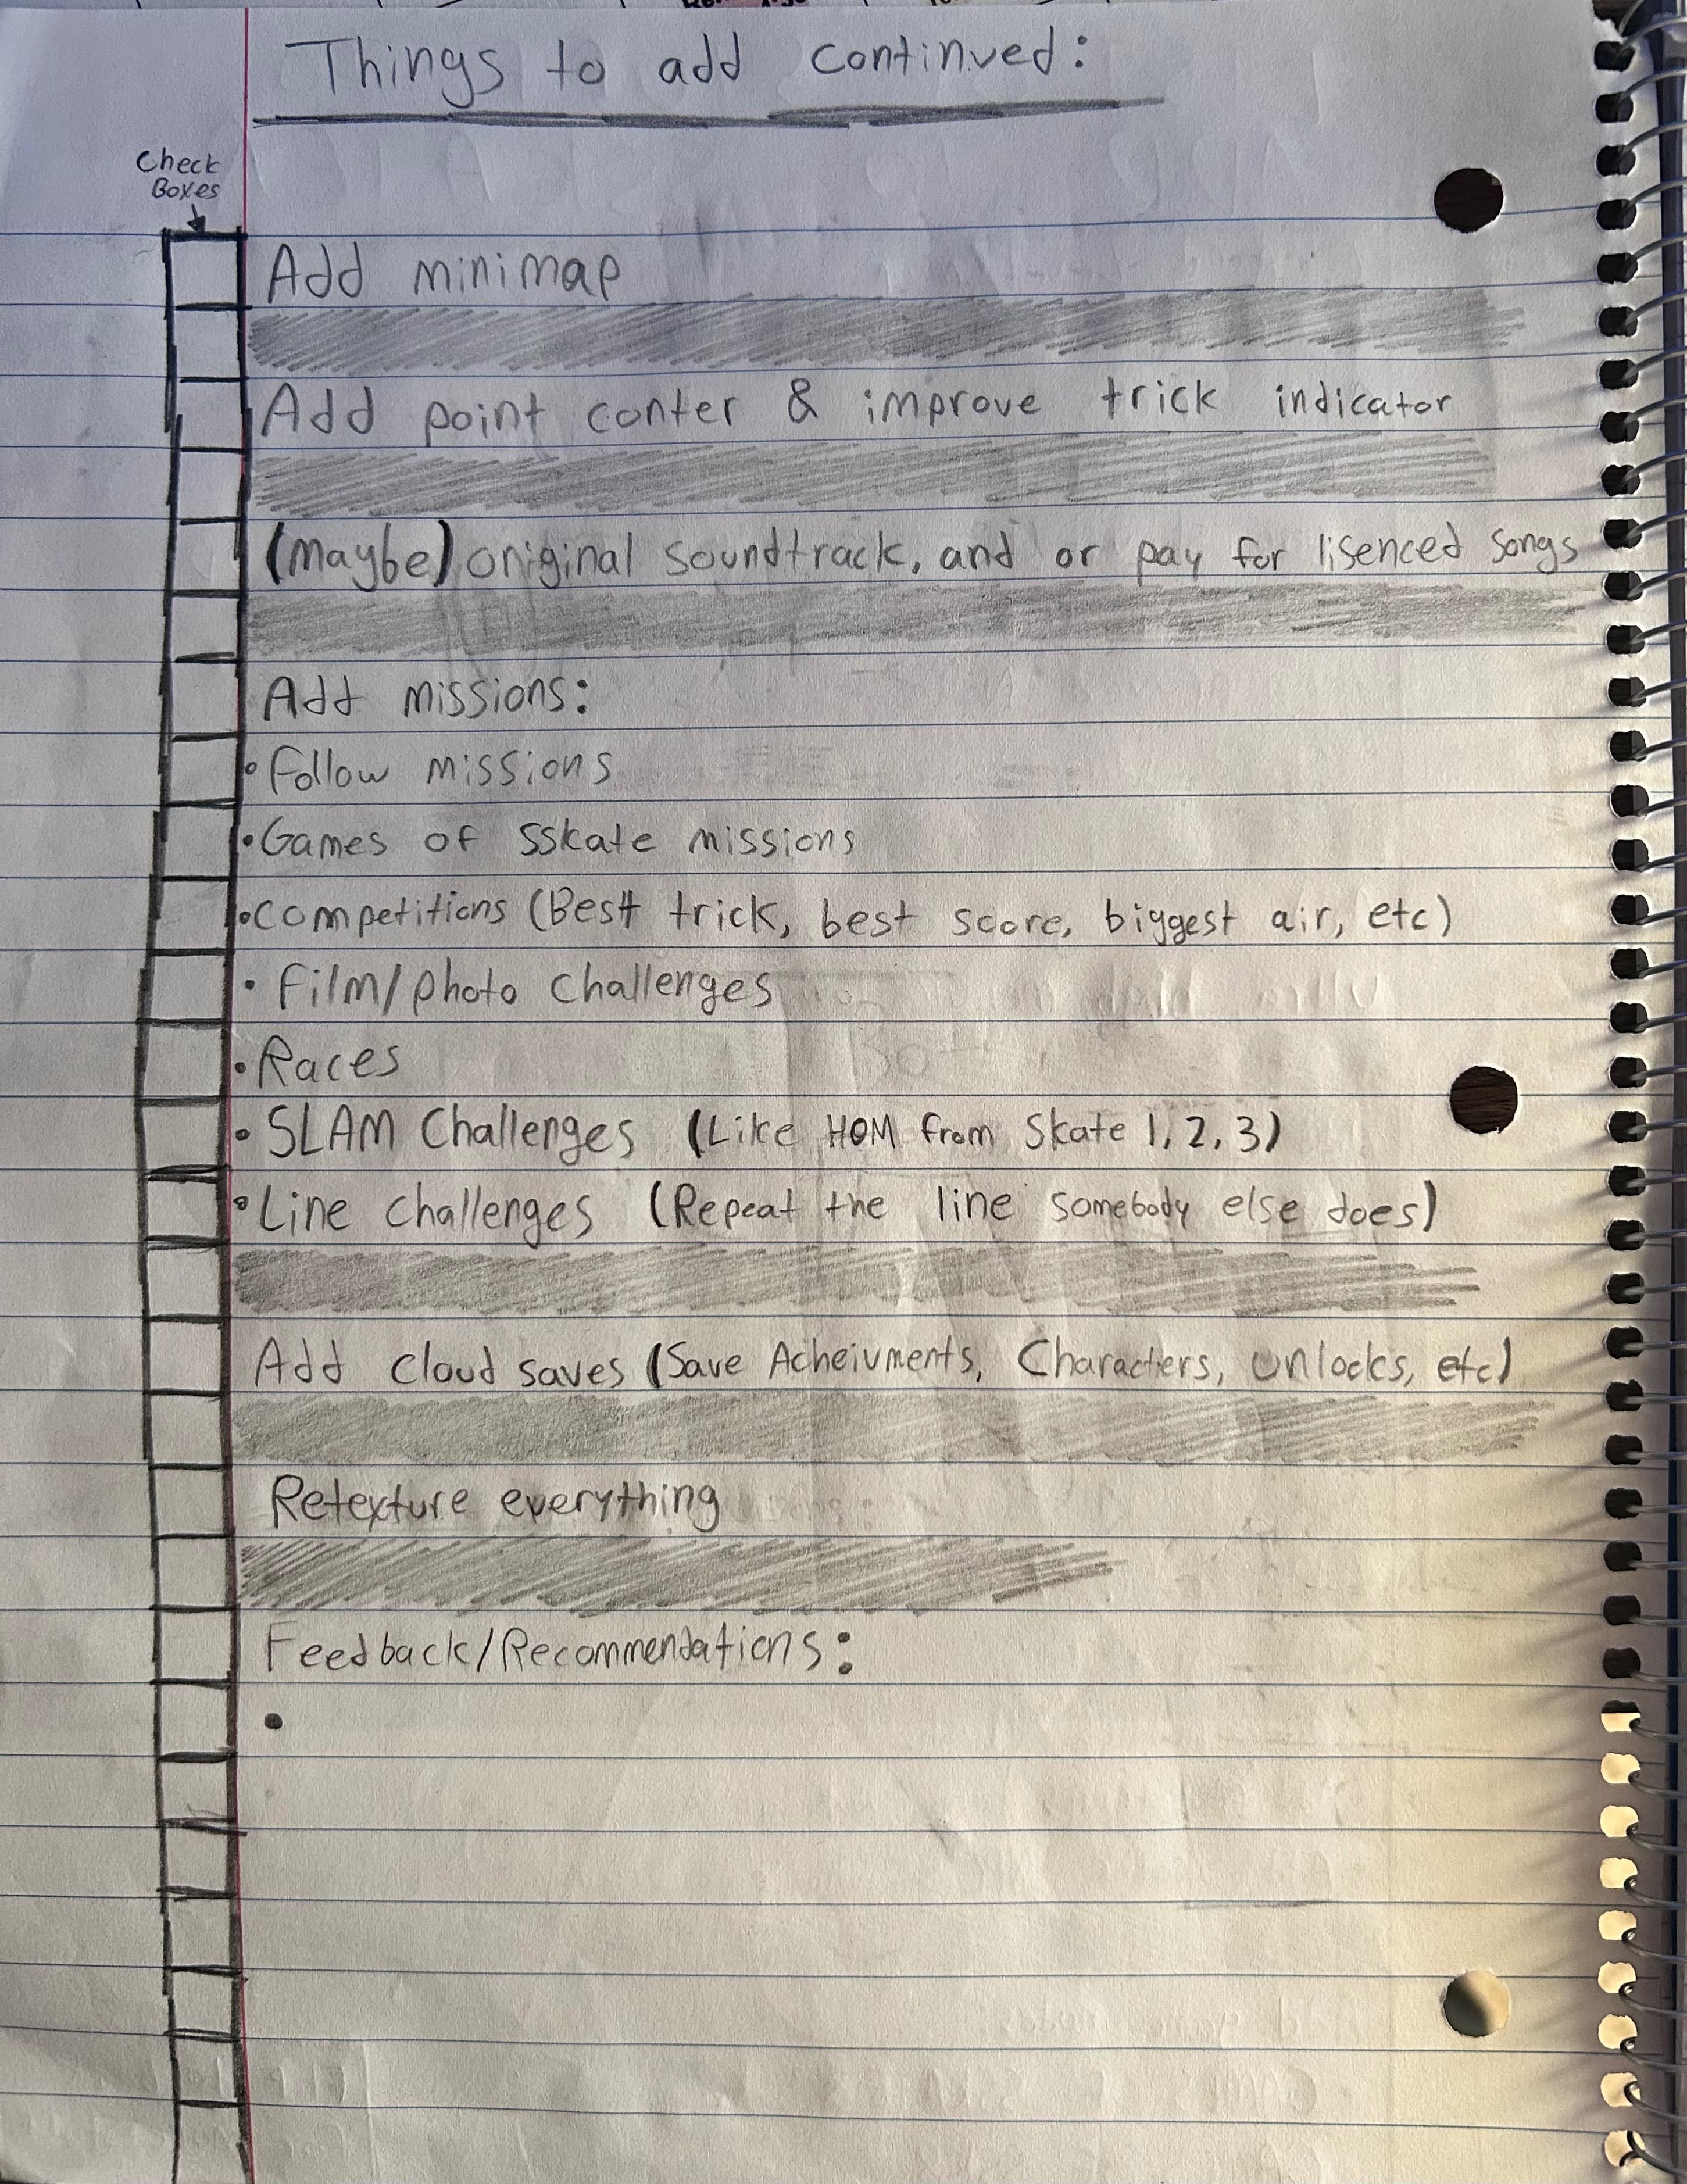 Things to add continued:
Check
Boxes
Add minimap
Add point conter & improve trick indicator
(maybe) original soundtrack, and or pay for lisenced songs
Add missions:
• Follow missions
• Games of SSkate missions
• competitions (Best trick, best score, biggest air, etc)
• Film/photo challenges
• Races
• SLAM Challenges (Like HOM from Skate 1, 2, 3)
• Line challenges (Repeat the line somebody else does)
Add cloud saves (Save Acheivments, Characters, unlocks, etc)
Retexture everything
Feedback/Recommendations:
•